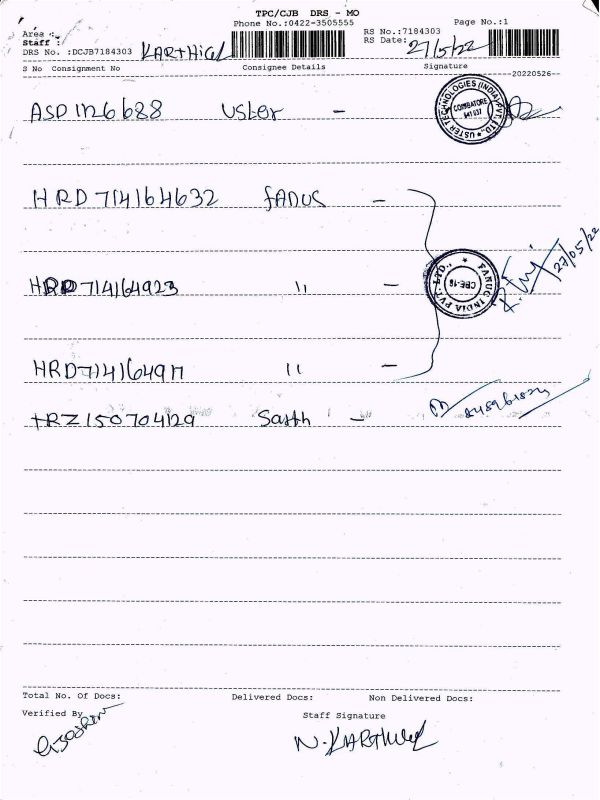 TPC/CJB DRS - MO
Phone No.:0422-3505555
Page No.:1
Area :
Staff :
RS No.:7184303
DRS No. :DCJB7184303 KARTHICK
RS Date: 27/5/22
S No Consignment No Consignee Details Signature
20220526
ASD1126688 Uster -
USTER TECHNOLOGIES (INDIA) PVT. LTD. COIMBATORE 641 037
HRD714164632 FANUC -
HRD714164923 11 -
FANUC INDIA PVT. LTD., CBE-16
27/05/22
HRD7141649 11 -
HRZ150704129 -
Total No. Of Docs: Delivered Docs: Non Delivered Docs:
Verified By
Staff Signature
N. KARTHICK